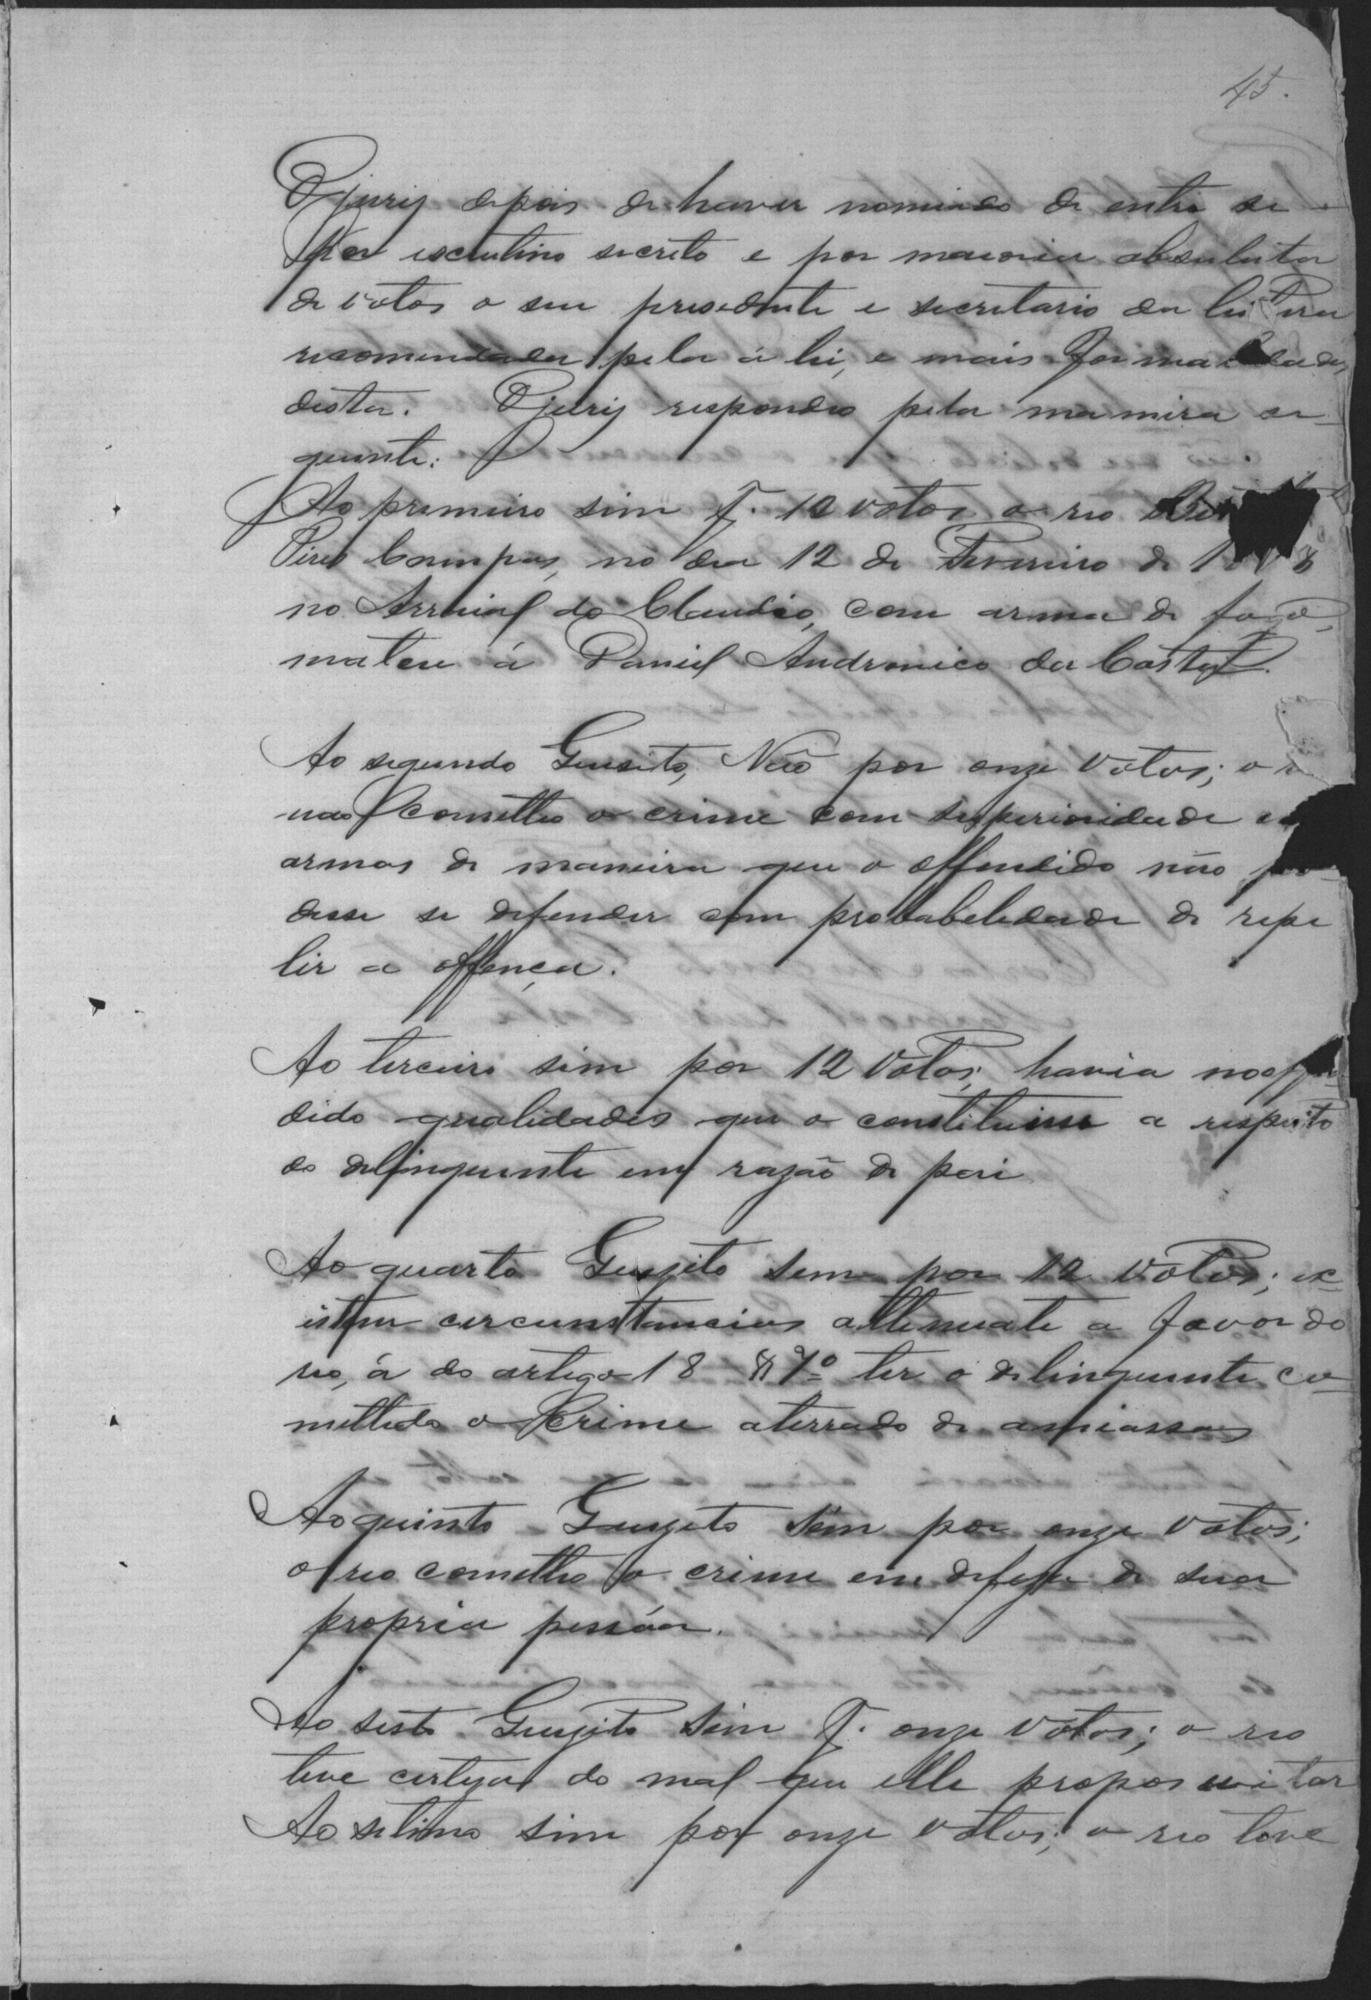 45.
O jury depois de haver nomiado de entre si
por escrutino secreto e por maioria absuluta
de votos o seu presedente e secretario da leitura
recomendada pela á lei, e mais formalidades
desta. O jury respondeo pela maneira se-
guinte:
Ao premeiro sim p. 12 votos o reo
Pires Campos, no dia 12 de Fevereiro de
no Arraial do Claudio, com arma de fogo,
matou á Daniel Andronico da Costa.
Ao segundo Quesito, Não por onze votos; o r
não cometteo o crime com superioridade
armas de maneira que o offendido não po-
desse se defender com probabelidade de repe
lir a offença.
Ao terceiro sim por 12 votos, havia no offen-
dido qualidades que o constituisse a respeito
do delinquente em razão de pai
Ao quarto Quezito sem por 12 votos; ex-
istem circunstancias attenuate a favor do
reo, á do artego 18 § 7º ter o delinquente co-
mettedo o crime aterrado de amiassas
Ao quinto Quezeto sim por onze votos;
o reo cometteo o crime em defeza de sua
propria pessôa.
Ao sesto Quezito sim p. onze votos; o reo
teve certeza do mal que elle propos evitar
Ao setimo sim por onze votos; o reo teve